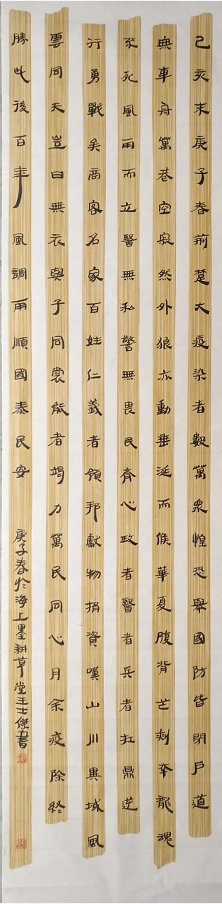 己亥末庚子春荊楚大疫染者數萬眾惶恐舉國防皆閉戶道
無車舟萬巷空寂然外狼亦動垂涎而候華夏腹背芒刺幸龍魂
不死風雨而立醫無私警無畏民齊心政者醫者兵者扛鼎逆
行勇戰矣商客名家百姓仁義者鄰邦獻物捐資嘆山川異域風
雲同天豈曰無衣與子同裳能者竭力萬民同心月余疫除終
勝此後百年風調雨順國泰民安
庚子春於海上墨耕草堂王士傑書